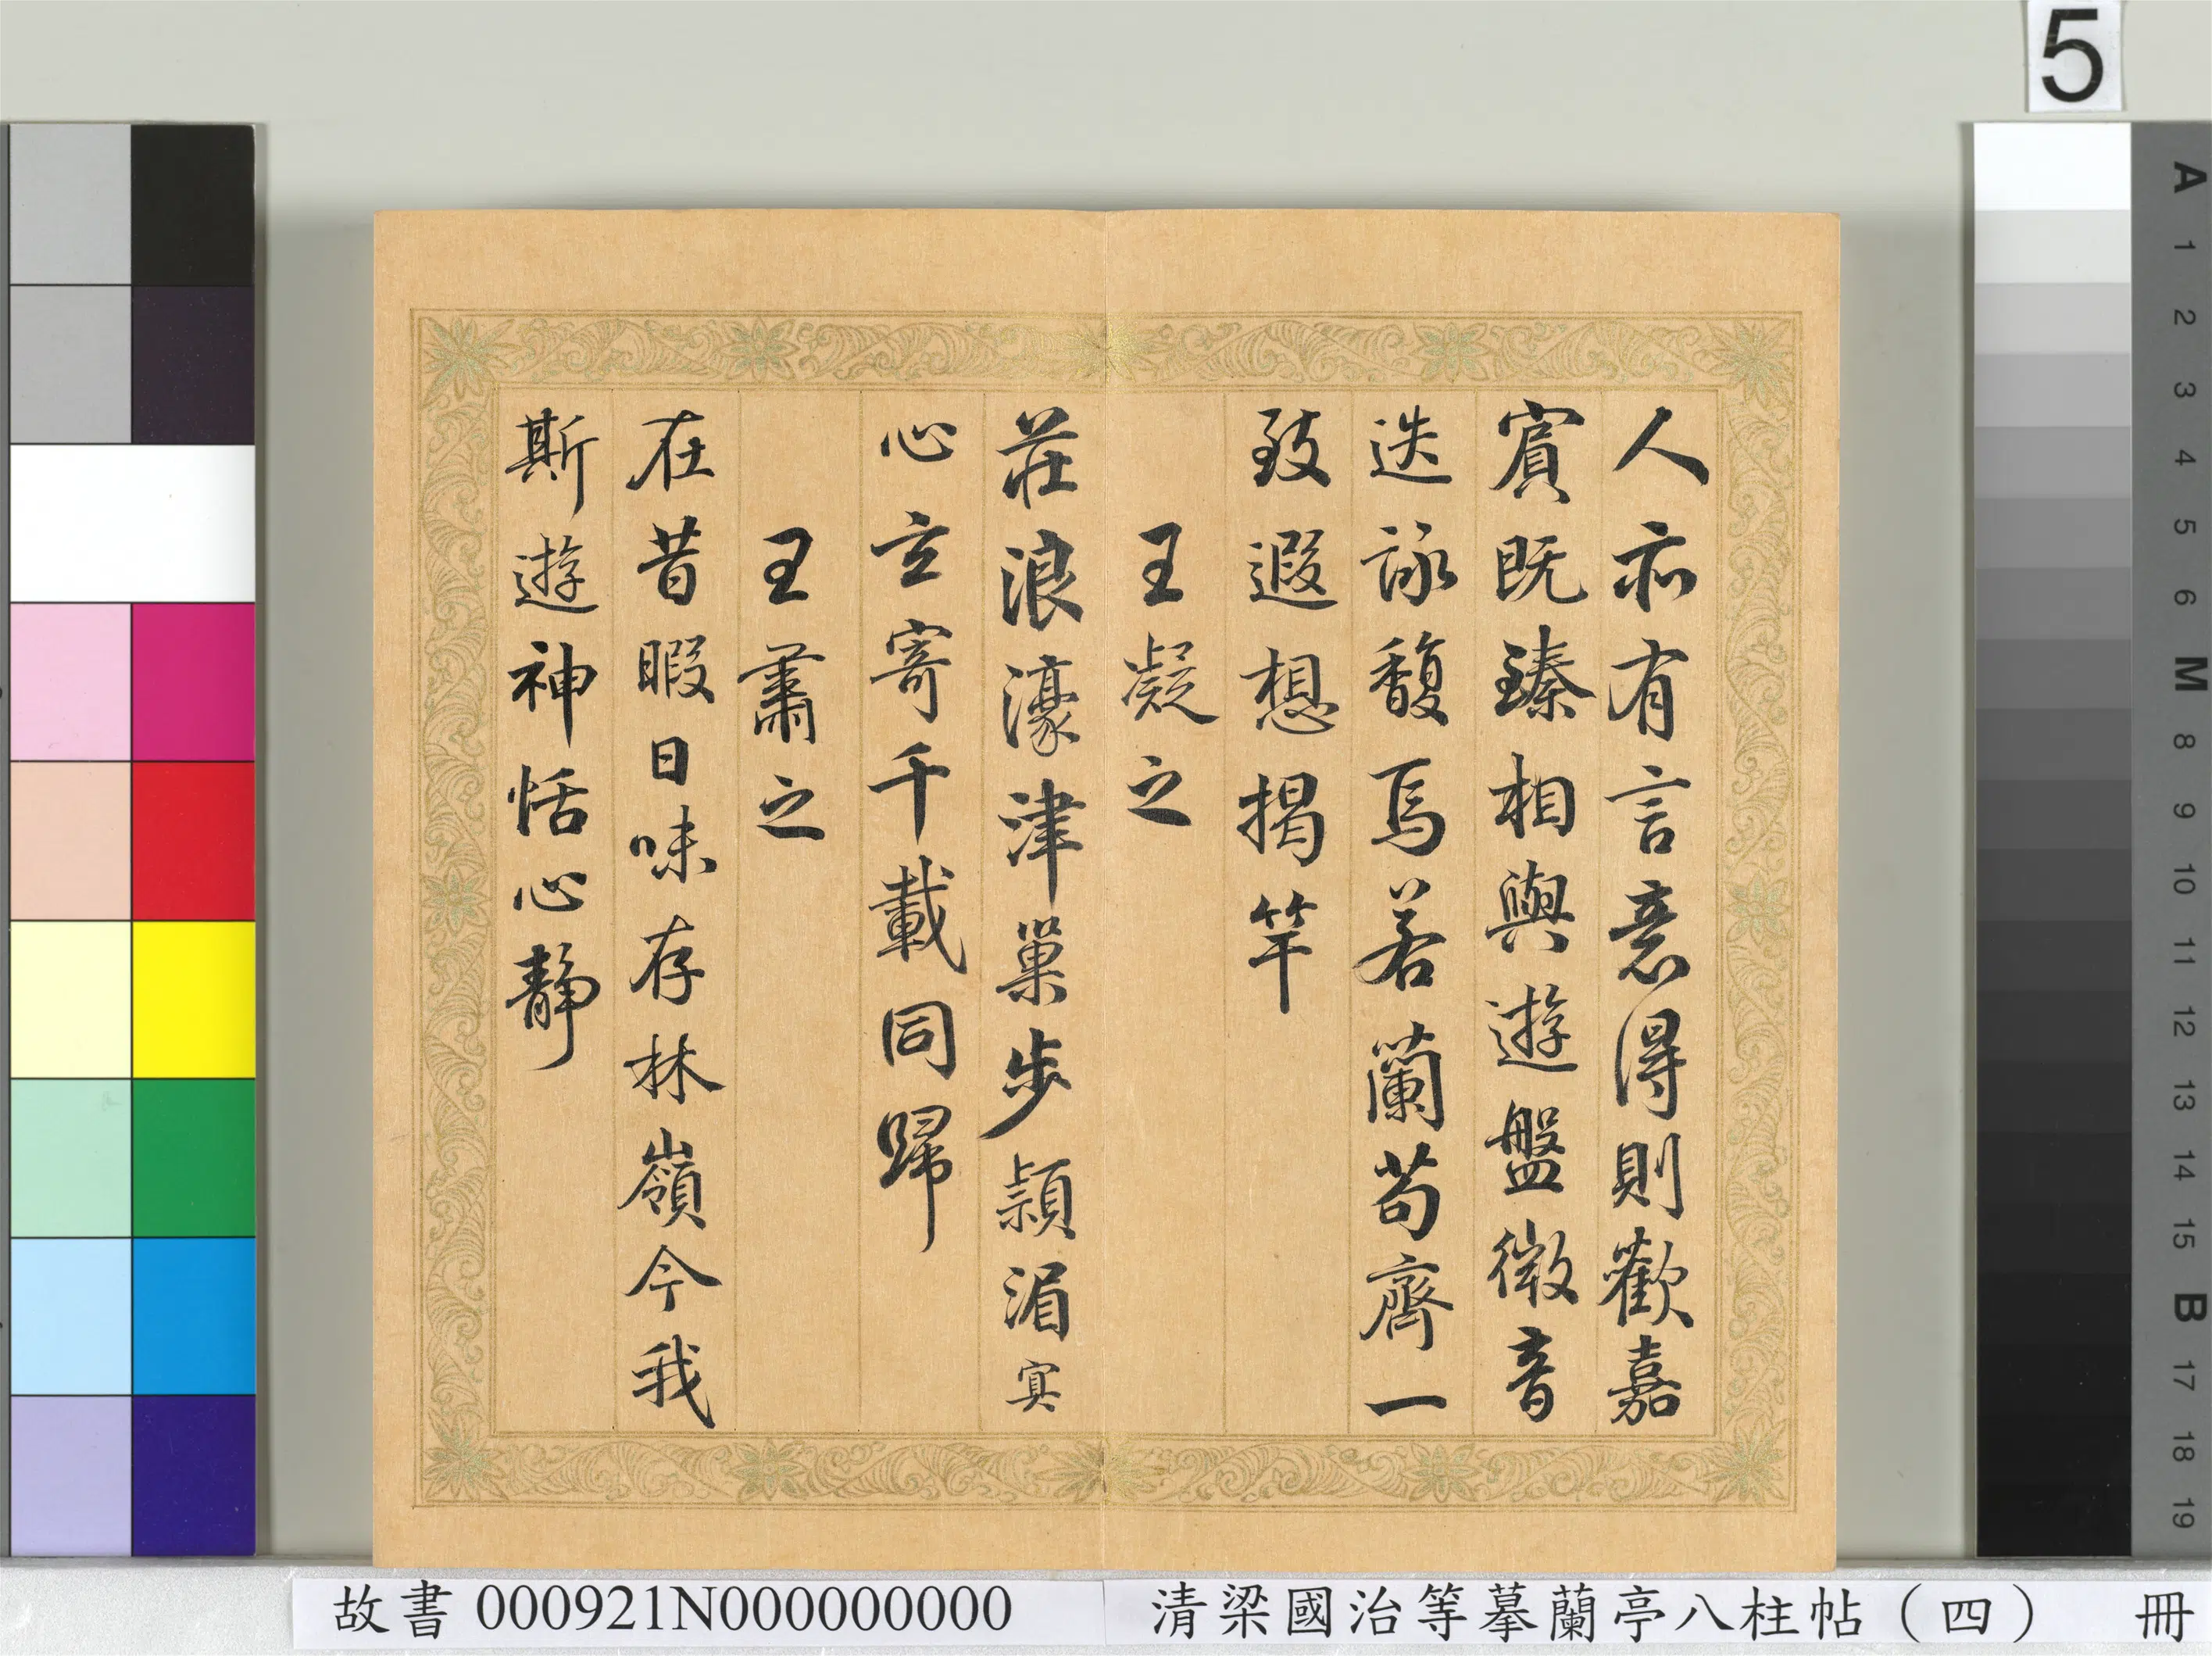 5
人亦有言意得則歡嘉
賓既臻相與遊盤微音
迭詠馥焉若蘭苟齊一
致遐想揭竿
王凝之
莊浪濠津巢步潁湄寘
心玄寄千載同歸
王肅之
在昔暇日味存林嶺今我
斯遊神恬心靜
A 1 2 3 4 5 6 M 8 9 10 11 12 13 14 15 B 17 18 19
故書 000921N000000000
清梁國治等摹蘭亭八柱帖（四） 冊